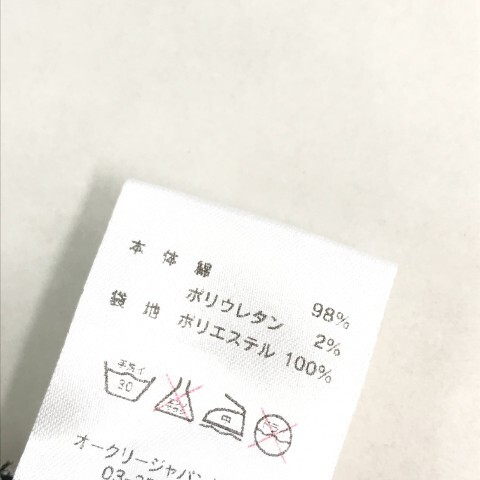 本体 綿 98%
ポリウレタン 2%
袋地 ポリエステル 100%
手洗イ
30
オークリージャパン
03-